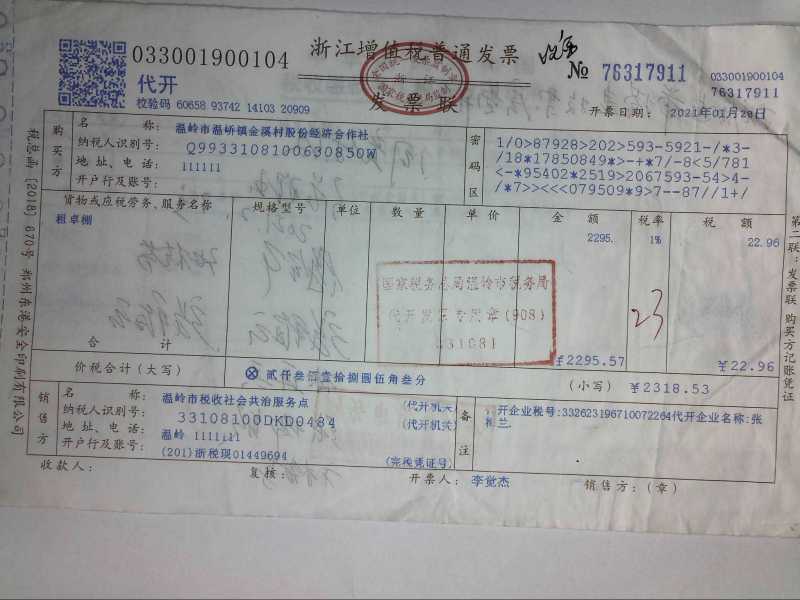 033001900104
浙江增值税普通发票
№ 76317911
033001900104
76317911
代开
发票联
校验码 60658 93742 14103 20909
开票日期: 2021年01月28日
购买方
名 称: 温岭市温峤镇金溪村股份经济合作社
纳税人识别号: Q9933108100630850W
地 址、电 话: 111111
开户行及账号:
密码区
1/0>87928>202>593-5921-/*3-
/18*17850849*>-+*7/-8<5/781
<-*95402*2519>2067593-54>4-
/*7>><<<079509*9>7--87//1+/
货物或应税劳务、服务名称 规格型号 单位 数 量 单 价 金 额 税率 税 额
租卓棚 2295. 1% 22.96
国家税务总局温岭市税务局
代开发票专用章(908)
331081
23
合 计 ¥2295.57 ¥22.96
价税合计(大写) ⊗ 贰仟叁佰壹拾捌圆伍角叁分 (小写) ¥2318.53
销售方
名 称: 温岭市税收社会共治服务点 (代开机关)
纳税人识别号: 33108100DKD0484 (代开机关)
地 址、电 话: 温岭 1111111
开户行及账号: (201)浙税现01449694 (完税凭证号)
备注
开企业税号:332623196710072264代开企业名称:张
兰
收款人: 复核: 开票人: 李觉杰 销售方:(章)
税总函〔2018〕670号 郑州东港安全印刷有限公司
第二联:发票联 购买方记账凭证